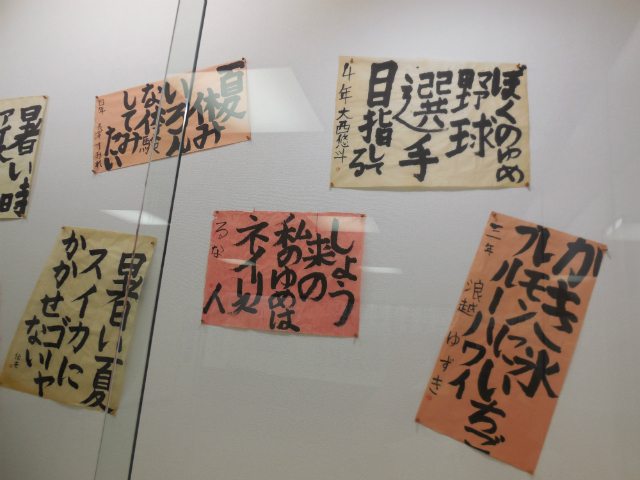 暑い時
夏休み
いろん
な体験
してみ
たい
四年
ぼくのゆめ
野球
選手
目指してる
4年 大西悠斗
暑い夏
スイカにゴーヤ
かかせない
しょう
来の
私のゆめは
ネイリスト
るな
かき氷
レモンにいちご
ブルーハワイ
三年 浪越ゆずき